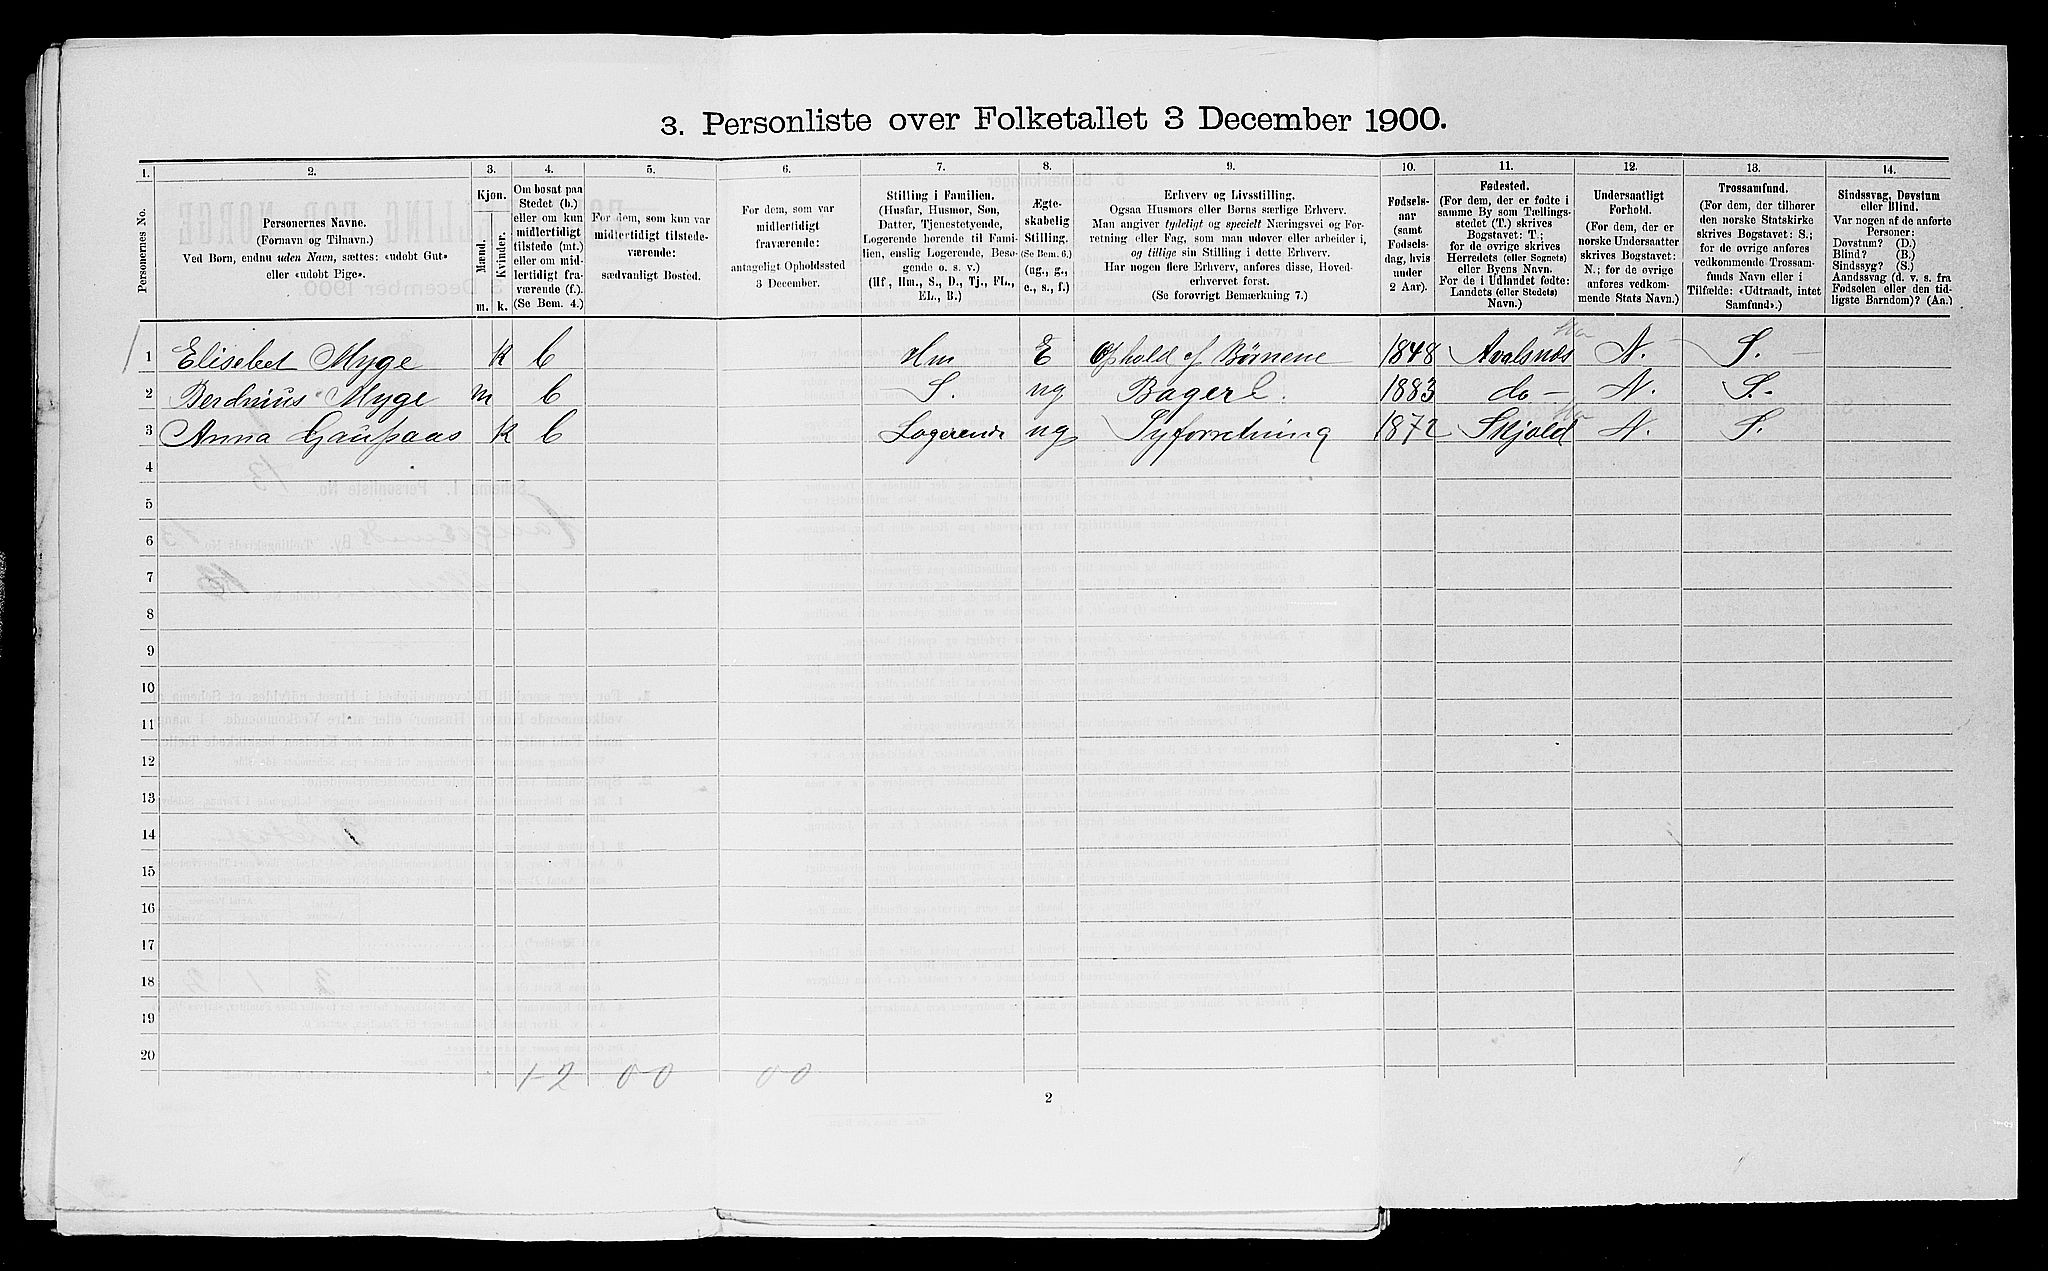 3. Personliste over Folketallet 3 December 1900.
1. 2. 3. 4. 5. 6. 7. 8. 9. 10. 11. 12. 13. 14.
Personernes No.
Personernes Navne.
(Fornavn og Tilnavn.)
Ved Børn, endnu uden Navn, sættes: «udøbt Gut»
eller «udøbt Pige».
Kjøn.
Mænd. Kvinder.
m. k.
Om bosat paa
Stedet (b.)
eller om kun
midlertidigt
tilstede (mt.)
eller om mid-
lertidigt fra-
værende (f.).
(Se Bem. 4.)
For dem, som kun var
midlertidigt tilstede-
værende:
sædvanligt Bosted.
For dem, som var
midlertidigt
fraværende:
antageligt Opholdssted
3 December.
Stilling i Familien.
(Husfar, Husmor, Søn,
Datter, Tjenestetyende,
Logerende hørende til Fami-
lien, enslig Logerende, Besø-
gende o. s. v.)
(Hf, Hm., S., D., Tj., FL.,
EL., B.)
Ægte-
skabelig
Stilling.
(Se Bem. 6.)
(ug., g.,
e., s., f.)
Erhverv og Livsstilling.
Ogsaa Husmors eller Børns særlige Erhverv.
Man angiver tydeligt og specielt Næringsvei og For-
retning eller Fag, som man udøver eller arbeider i,
og tillige sin Stilling i dette Erhverv.
Har nogen flere Erhverv, anføres disse, Hoved-
erhvervet først.
(Se forøvrigt Bemærkning 7.)
Fødsels-
aar
(samt
Fødsels-
dag, hvis
under
2 Aar).
Fødested.
(For dem, der er fødte i
samme By som Tællings-
stedet (T.) skrives
Bogstavet: T.;
for de øvrige skrives
Herredets (eller Sognets)
eller Byens Navn.
For de i Udlandet fødte:
Landets (eller Stedets)
Navn.)
Undersaatligt
Forhold.
(For dem, der er
norske Undersaatter
skrives Bogstavet:
N.; for de øvrige
anføres vedkom-
mende Stats Navn.)
Trossamfund.
(For dem, der tilhører
den norske Statskirke
skrives Bogstavet: S.;
for de øvrige anføres
vedkommende Trossam-
funds Navn eller i
Tilfælde: «Udtraadt, intet
Samfund».)
Sindssvag, Døvstum
eller Blind.
Var nogen af de anførte
Personer:
Døvstum? (D.)
Blind? (B.)
Sindssyg? (S.)
Aandssvag (d. v. s. fra
Fødselen eller den tid-
ligste Barndom)? (Aa.)
1 Elisebet Myge k b Hm E Ophold af Børnene 1848 Avalsnæs N. S.
2 Berdnius Myge m b S. ug Bager 1883 do - N. S.
3 Anna Gaupaas k b Logerende ug Syforretning 1872 Skjold N. S.
4
5
6
7
8
9
10
11
12
13
14
15
16
17
18
19
20
1-2 0-0 0-0
2